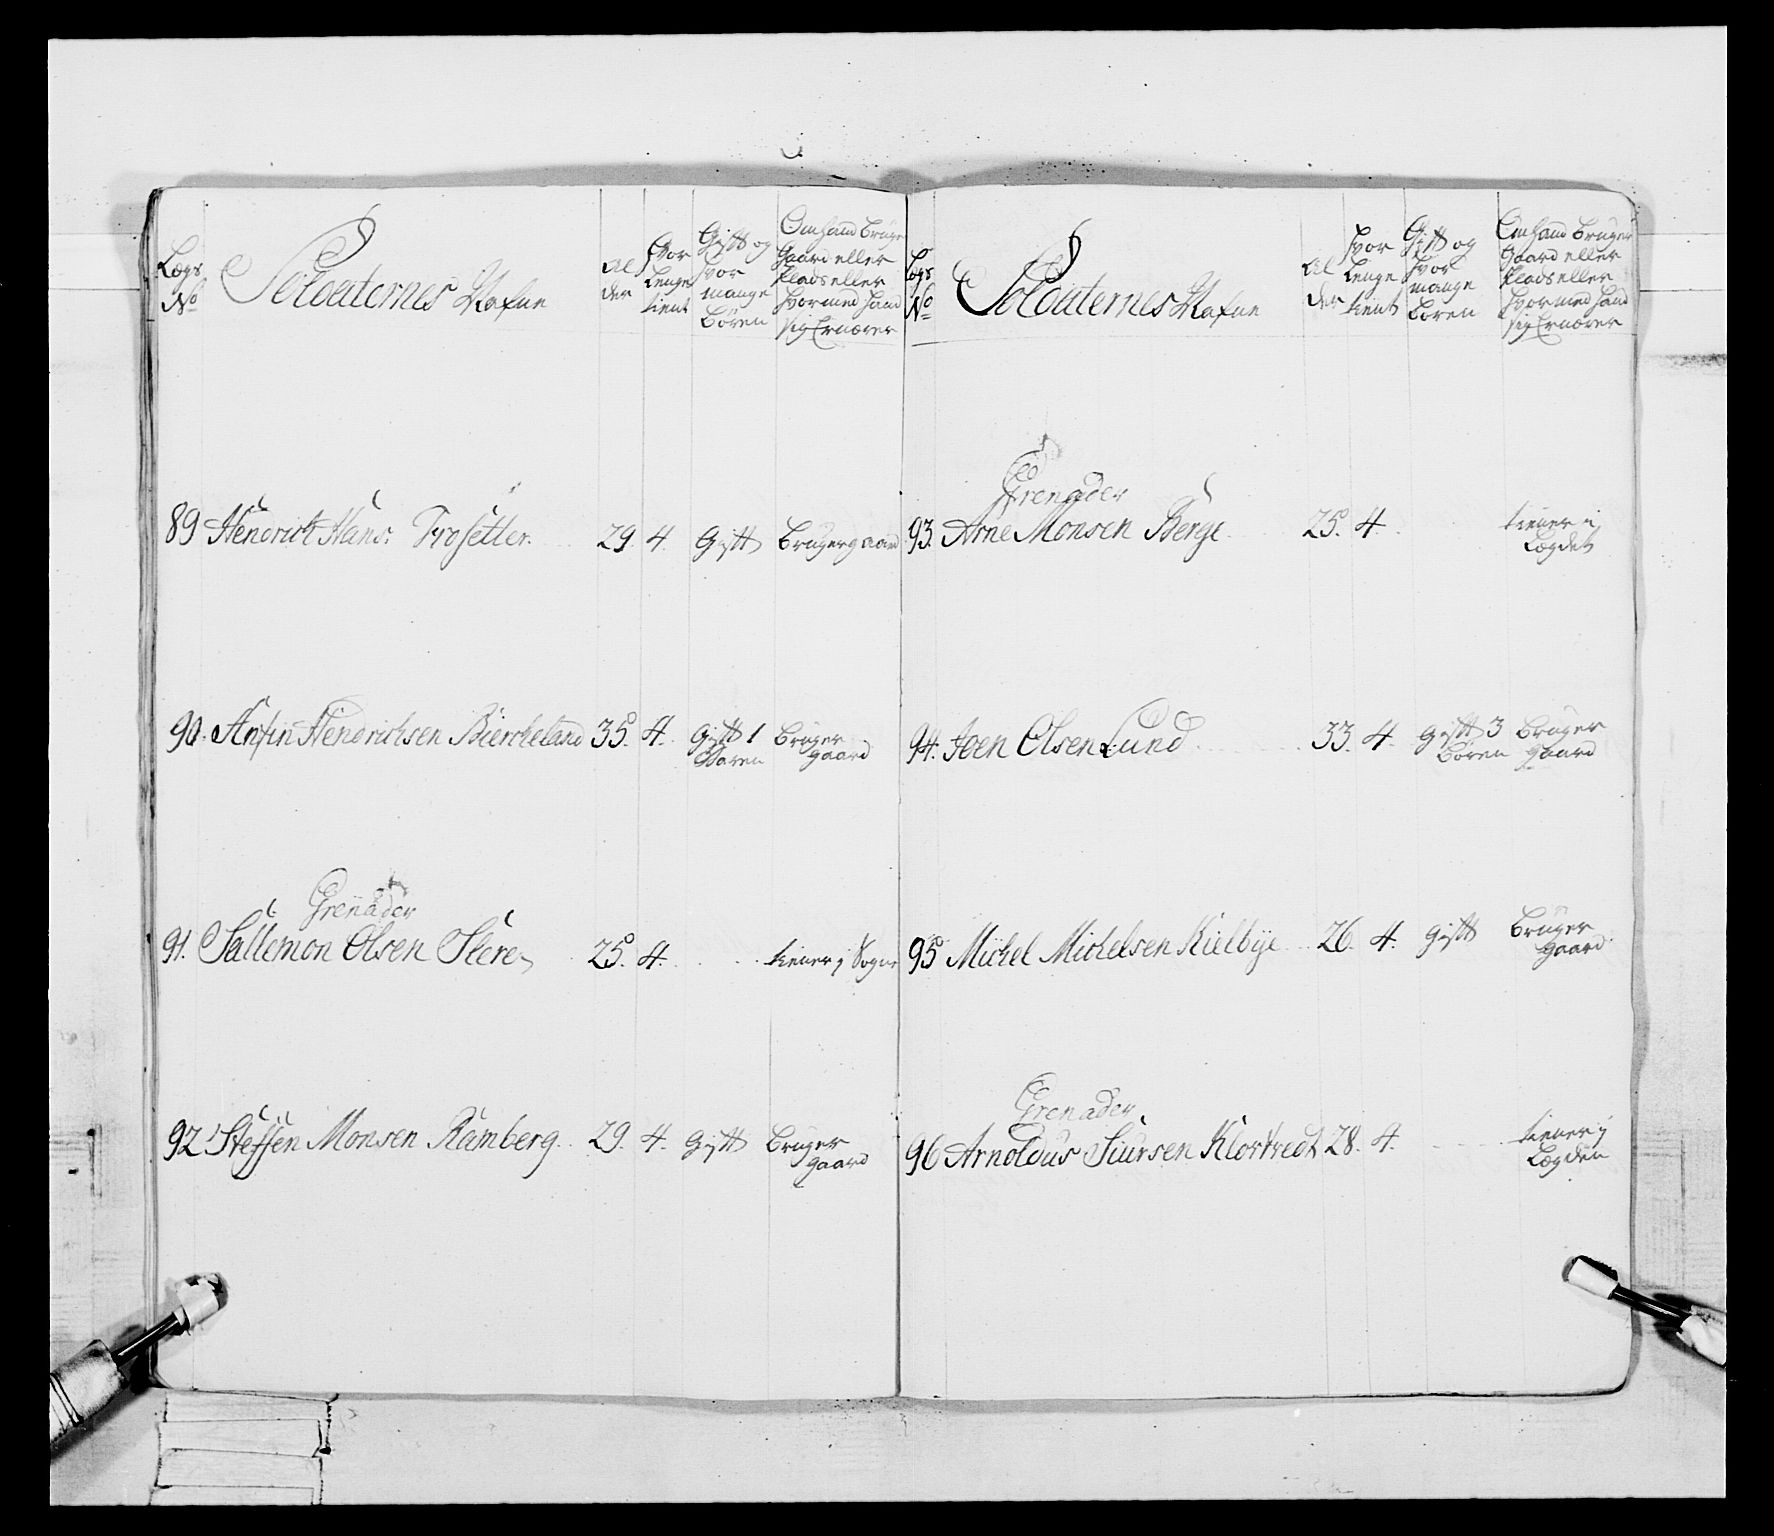 Lægs No
Soldaternes Nafne
Al der
Hvor Lenge tient
Gift og hvor mange Børen
Om hand bruger Gaard eller Plads eller hvormed hand sig Ernærer
89 Hendrich Hans: Trosetter. 29. 4. Gift Bruger gaard
90. Anfin Hendrichsen Bierckeland 35. 4. Gift 1 Bruger
Baren gaard
Grenader
91. Sallemon Olsen Stere 25. 4. tiener j Sogne
92 Steffen Monsen Ramberg 29. 4. Gift Bruger
gaard
Lægs No
Soldaternes Nafne
Al der
hvor Lenge tient
Gift og hvor mange Børen
Om hand bruger Gaard eller Plads eller hvormed hand sig Ernærer
Grenader
93. Arne Monsen Berge 25. 4. tiener ij
Lægdet
94. Joen Olsen Lund 33. 4. Gift 3 Bruger
Børen gaard
95 Michel Michelsen Kielbye 26. 4. Gift Bruger
gaard
Grenader
96 Arnoldus Siursen 28. 4. tiener ij
Lægden